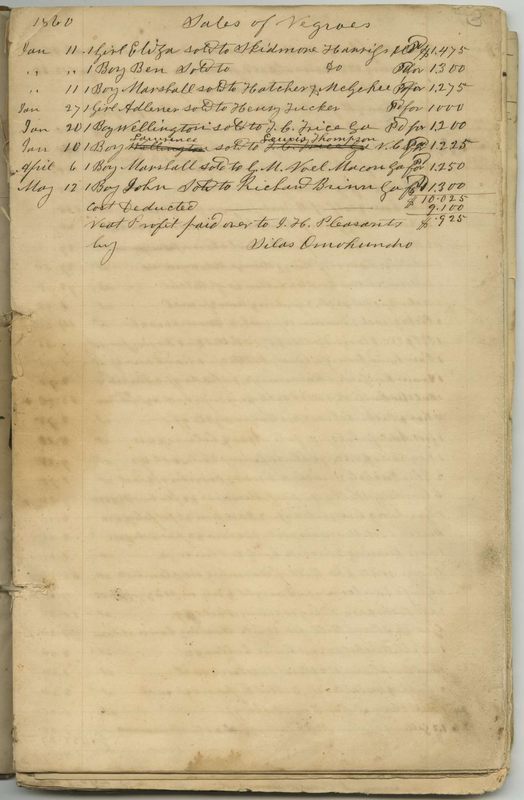 1860 Sales of Negroes 3
Jan 11 1 Girl Eliza sold to Skidmore Harris Pd for $1.475
" " 1 Boy Ben Sold to Do Pd for 1300
" 11 1 Boy Marshall sold to Hatcher & McGehee Pd for 1.275
Jan 27 1 Girl Adlener sold to Henry Tucker Pd for 1000
Jan 20 1 Boy Wellington sold to J. C. Frice Ga Pd for 1.200
Lawrence Lewis Thompson
Jan 10 1 Boy Wellington sold to N.C. Pd for 1.225
April 6 1 Boy Marshall sold to G. M. Noel Macon Ga Pd for 1.250
May 12 1 Boy John Sold to Richard Brinn Ga Pd for 1.300
$ 10.025
Cost Deducted 9.100
Neat Profit paid over to J. H. Pleasants $ .925
by Silas Omohundro